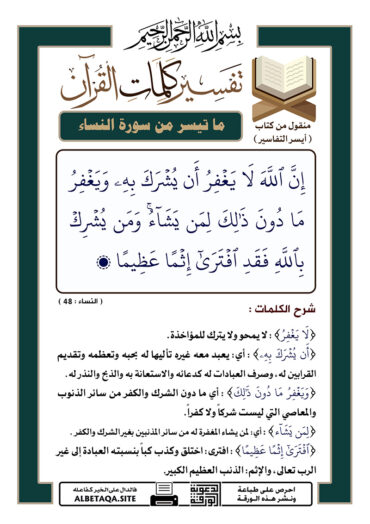 بسم الله الرحمن الرحيم
تفسير كلمات القرآن
ما تيسر من سورة النساء
منقول من كتاب
( أيسر التفاسير )
إِنَّ ٱللَّهَ لَا يَغْفِرُ أَن يُشْرَكَ بِهِۦ وَيَغْفِرُ
مَا دُونَ ذَٰلِكَ لِمَن يَشَآءُ ۚ وَمَن يُشْرِكْ
بِٱللَّهِ فَقَدِ ٱفْتَرَىٰٓ إِثْمًا عَظِيمًا
( النساء : 48 )
شرح الكلمات :
﴿لَا يَغْفِرُ﴾ : لا يمحو ولا يترك للمؤاخذة.
﴿أَن يُشْرَكَ بِهِۦ﴾ : أي: يعبد معه غيره تأليها له بحبه وتعظمه وتقديم
القرابين له، وصرف العبادات له كدعائه والاستعانة به والذبح والنذر له.
﴿وَيَغْفِرُ مَا دُونَ ذَٰلِكَ﴾ : أي ما دون الشرك والكفر من سائر الذنوب
والمعاصي التي ليست شركاً ولا كفراً.
﴿لِمَن يَشَآءُ﴾ : أي: لمن يشاء المغفرة له من سائر المذنبين بغير الشرك والكفر.
﴿ٱفْتَرَىٰٓ إِثْمًا عَظِيمًا﴾ : افترى: اختلق وكذب كباً بنسبته العبادة إلى غير
الرب تعالى، والإثم: الذنب العظيم الكبير.
احرص على طباعة
ونشر هذه الورقة
الدعوية
الورقة
فالدال على الخير كفاعله
ALBETAQA.SITE